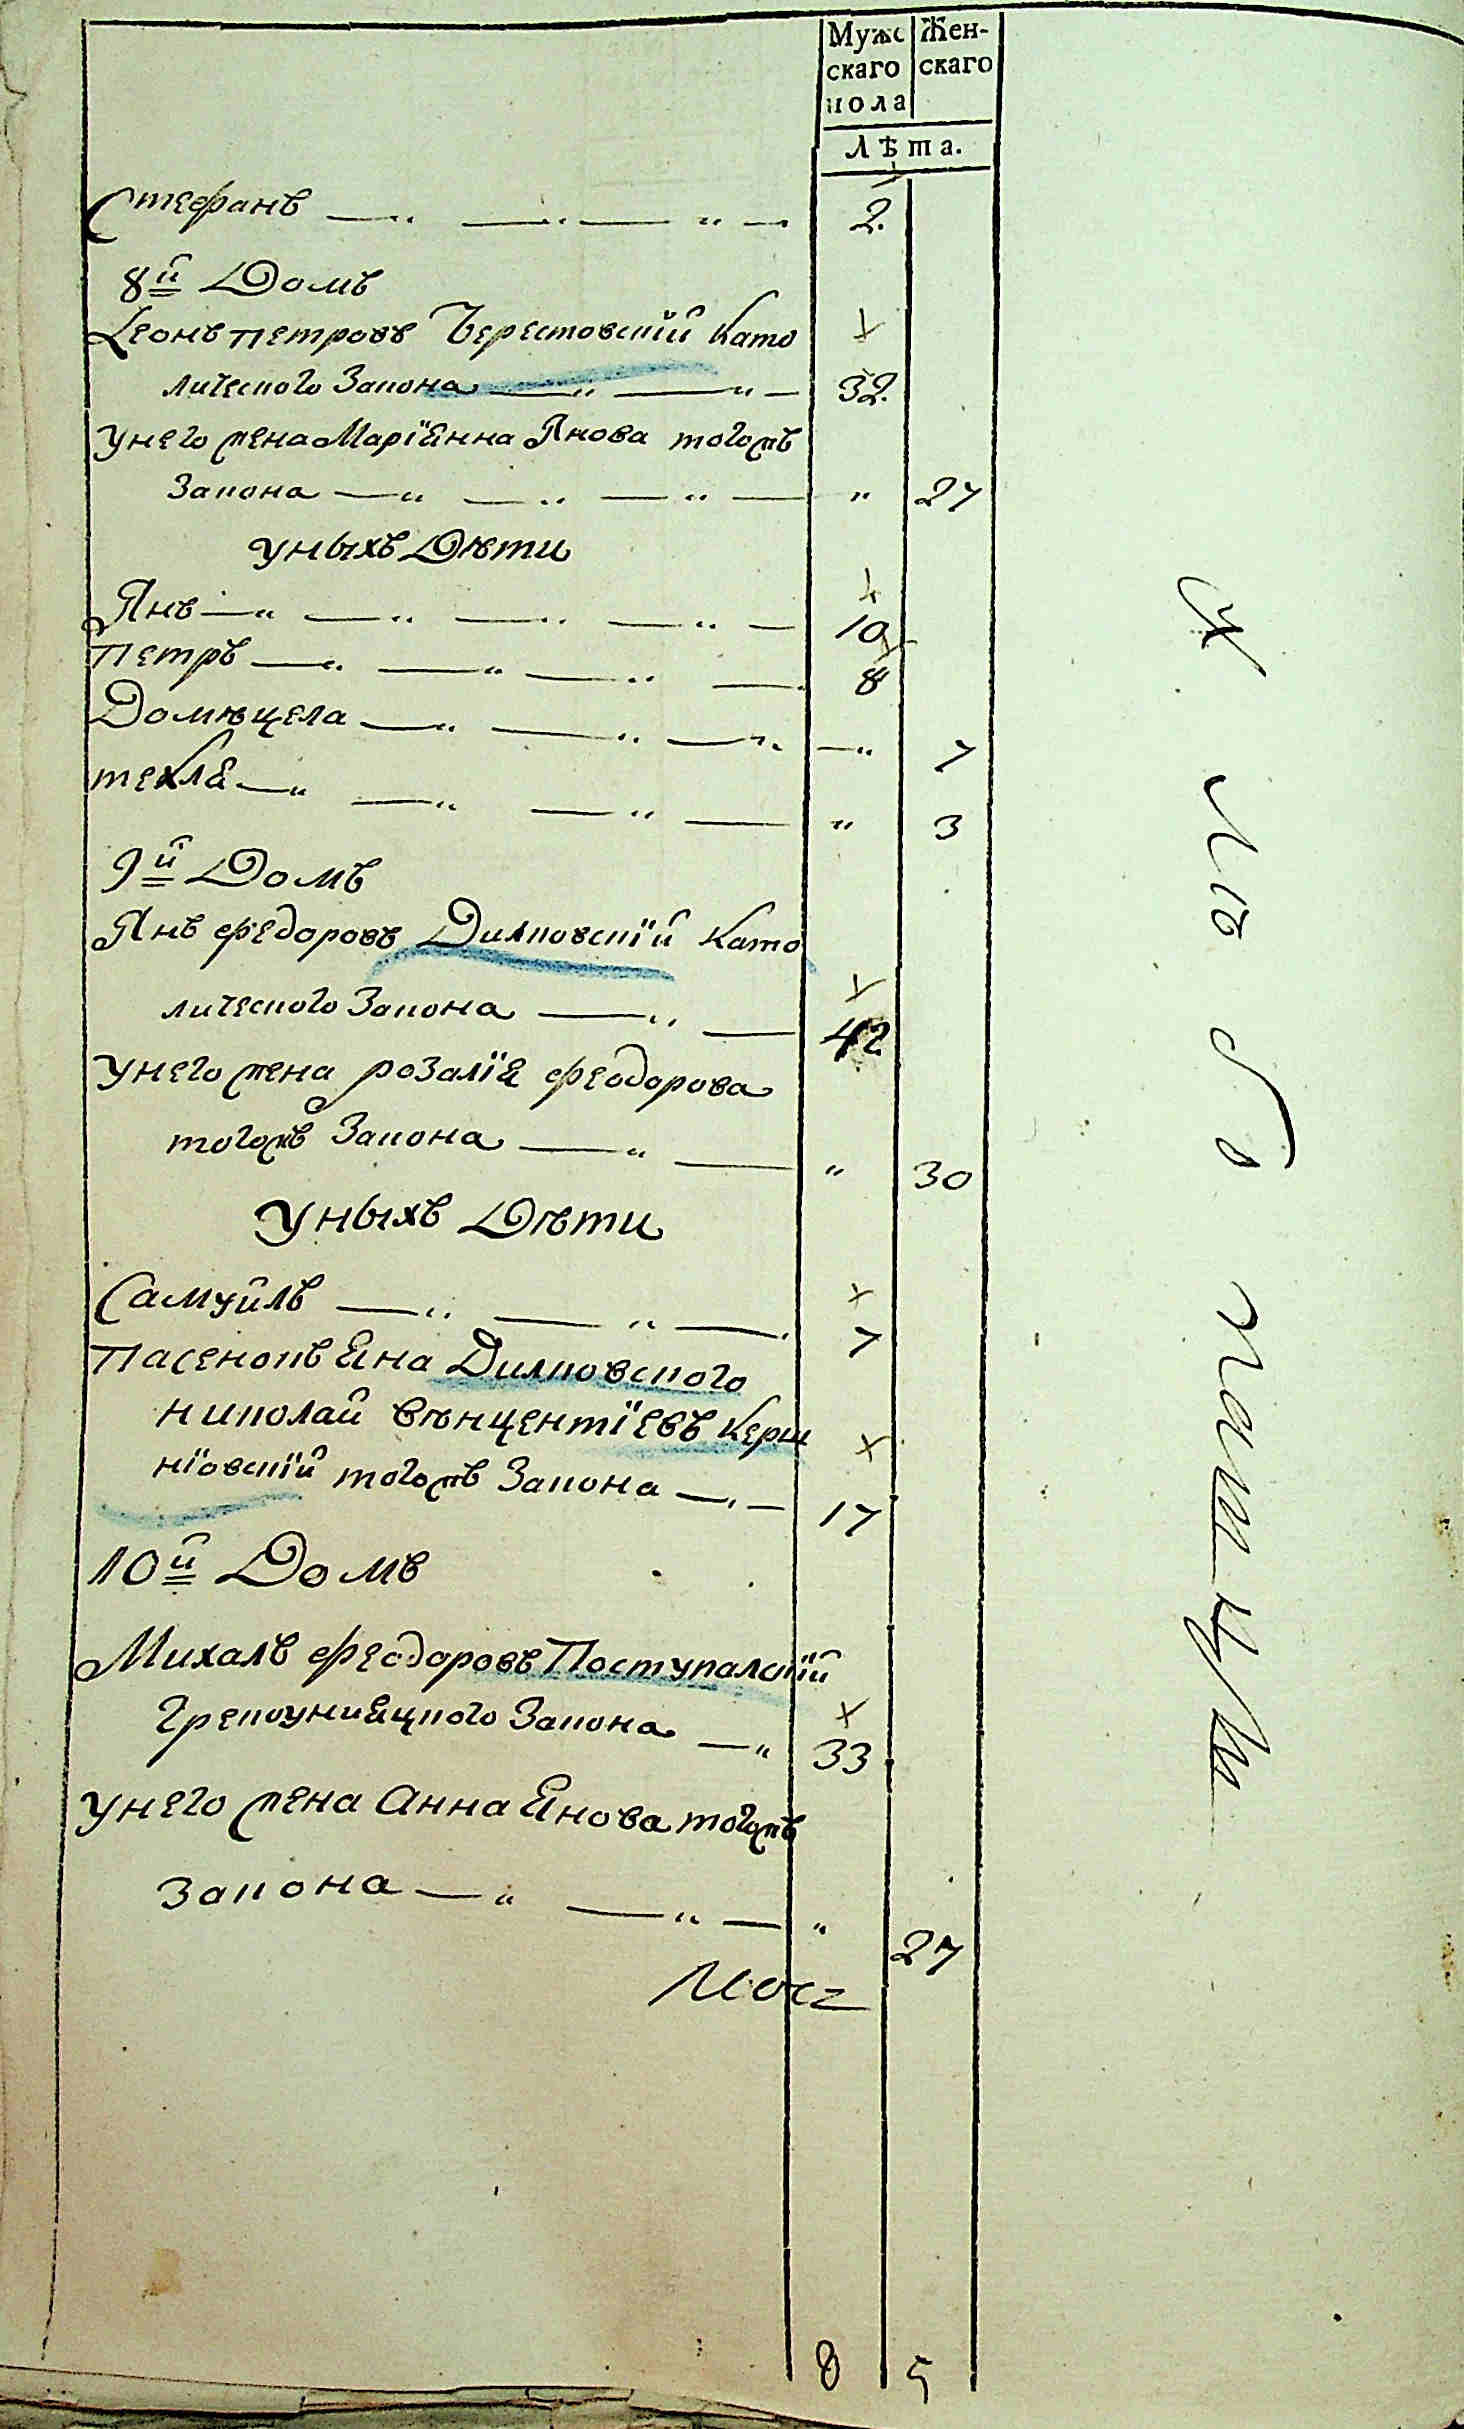 Мужс Жен-
скаго скаго
пола
Лѣта.
Стефанъ 2.
8й Домъ
Леонъ петровъ Берестовскiй Като
лического Закона 32.
унего жена Марiянна Янова тогожъ
Закона " 27
уныхъ Дѣти
Янъ 10
Петръ 8
Домѣцела " 7
текля " 3
9й Домъ
Янъ федоровъ Дилковскiй Като
лического Закона 42
унего жена розалiя феодорова
тогожъ Закона " 30
уныхъ Дѣти
Самуйлъ 7
Пасенокъ яна Дилковского
николай вѣнцентiевъ Керш
нiовскiй тогожъ Закона 17
10й Домъ
Михалъ феодоровъ Поступалскiй
Грекоунияцкого Закона 33
унего жена анна янова тогожъ
закона " 27
8 5